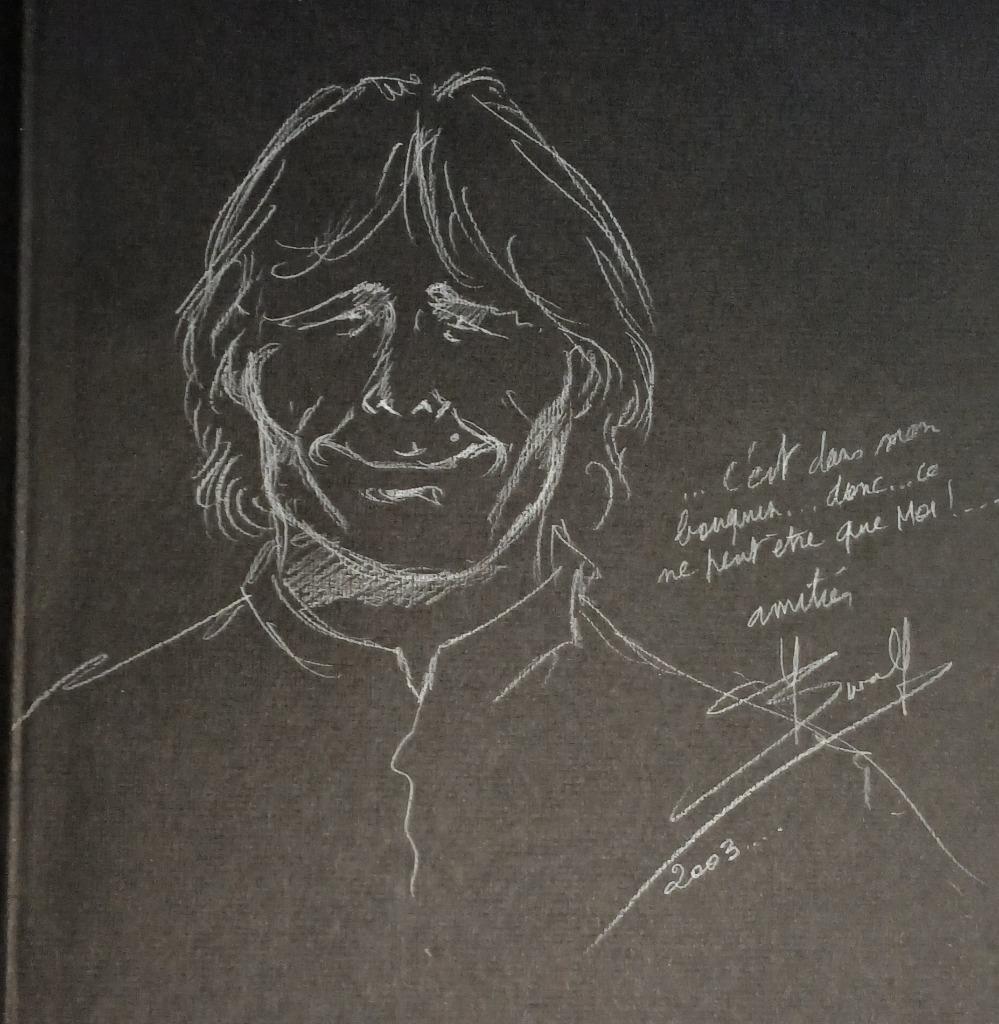 ... c'est dans mon
bouquin... donc... ce
ne peut être que Moi !...
amitiés
2003....